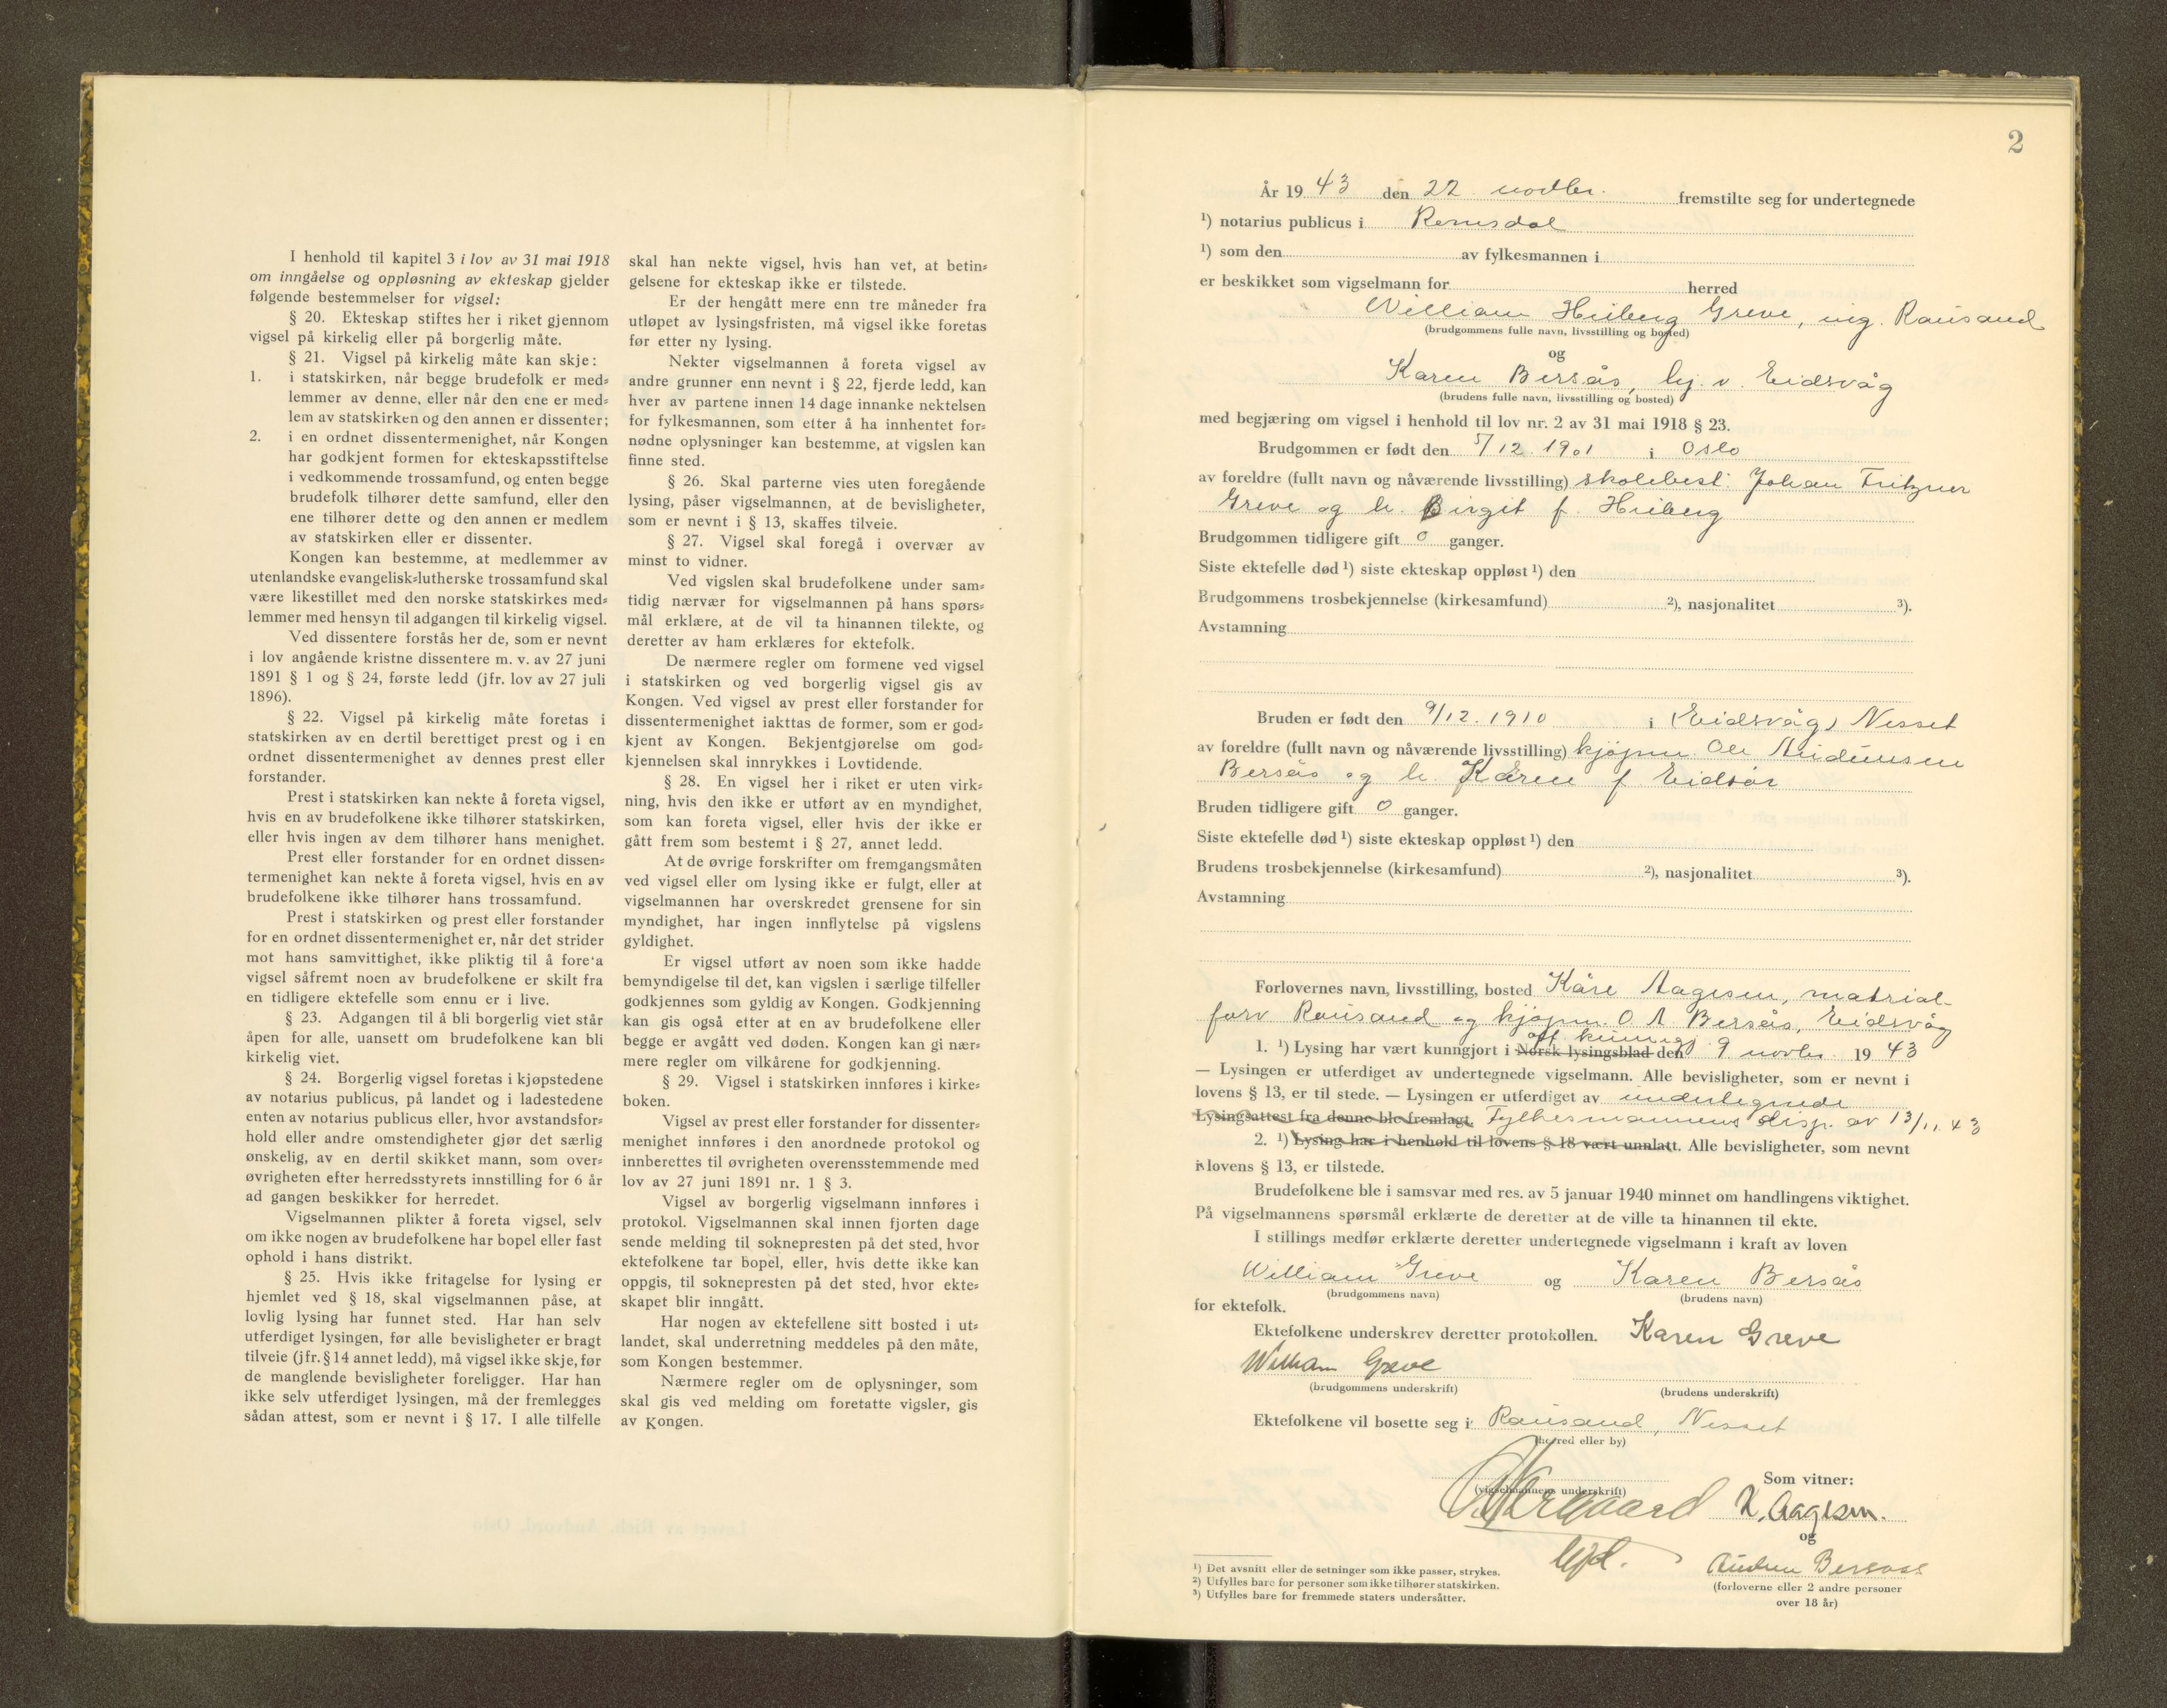 I henhold til kapitel 3 i lov av 31 mai 1918
om inngåelse og oppløsning av ekteskap gjelder
følgende bestemmelser for vigsel:
§ 20. Ekteskap stiftes her i riket gjennom
vigsel på kirkelig eller på borgerlig måte.
§ 21. Vigsel på kirkelig måte kan skje:
1. i statskirken, når begge brudefolk er med=
lemmer av denne, eller når den ene er med=
lem av statskirken og den annen er dissenter;
2. i en ordnet dissentermenighet, når Kongen
har godkjent formen for ekteskapsstiftelse
i vedkommende trossamfund, og enten begge
brudefolk tilhører dette samfund, eller den
ene tilhører dette og den annen er medlem
av statskirken eller er dissenter.
Kongen kan bestemme, at medlemmer av
utenlandske evangelisk=lutherske trossamfund skal
være likestillet med den norske statskirkes med=
lemmer med hensyn til adgangen til kirkelig vigsel.
Ved dissentere forstås her de, som er nevnt
i lov angående kristne dissentere m. v. av 27 juni
1891 § 1 og § 24, første ledd (jfr. lov av 27 juli
1896).
§ 22. Vigsel på kirkelig måte foretas i
statskirken av en dertil berettiget prest og i en
ordnet dissentermenighet av dennes prest eller
forstander.
Prest i statskirken kan nekte å foreta vigsel,
hvis en av brudefolkene ikke tilhører statskirken,
eller hvis ingen av dem tilhører hans menighet.
Prest eller forstander for en ordnet dissen=
termenighet kan nekte å foreta vigsel, hvis en av
brudefolkene ikke tilhører hans trossamfund.
Prest i statskirken og prest eller forstander
for en ordnet dissentermenighet er, når det strider
mot hans samvittighet, ikke pliktig til å fore'a
vigsel såfremt noen av brudefolkene er skilt fra
en tidligere ektefelle som ennu er i live.
§ 23. Adgangen til å bli borgerlig viet står
åpen for alle, uansett om brudefolkene kan bli
kirkelig viet.
§ 24. Borgerlig vigsel foretas i kjøpstedene
av notarius publicus, på landet og i ladestedene
enten av notarius publicus eller, hvor avstandsfor=
hold eller andre omstendigheter gjør det særlig
ønskelig, av en dertil skikket mann, som over=
øvrigheten efter herredsstyrets innstilling for 6 år
ad gangen beskikker for herredet.
Vigselmannen plikter å foreta vigsel, selv
om ikke nogen av brudefolkene har bopel eller fast
ophold i hans distrikt.
§ 25. Hvis ikke fritagelse for lysing er
hjemlet ved § 18, skal vigselmannen påse, at
lovlig lysing har funnet sted. Har han selv
utferdiget lysingen, før alle bevisligheter er bragt
tilveie (jfr. § 14 annet ledd), må vigsel ikke skje, før
de manglende bevisligheter foreligger. Har han
ikke selv utferdiget lysingen, må der fremlegges
sådan attest, som er nevnt i § 17. I alle tilfelle
skal han nekte vigsel, hvis han vet, at betin=
gelsene for ekteskap ikke er tilstede.
Er der hengått mere enn tre måneder fra
utløpet av lysingsfristen, må vigsel ikke foretas
før etter ny lysing.
Nekter vigselmannen å foreta vigsel av
andre grunner enn nevnt i § 22, fjerde ledd, kan
hver av partene innen 14 dage innanke nektelsen
for fylkesmannen, som etter å ha innhentet for=
nødne oplysninger kan bestemme, at vigslen kan
finne sted.
§ 26. Skal parterne vies uten foregående
lysing, påser vigselmannen, at de bevisligheter,
som er nevnt i § 13, skaffes tilveie.
§ 27. Vigsel skal foregå i overvær av
minst to vidner.
Ved vigslen skal brudefolkene under sam=
tidig nærvær for vigselmannen på hans spørs=
mål erklære, at de vil ta hinannen tilekte, og
deretter av ham erklæres for ektefolk.
De nærmere regler om formene ved vigsel
i statskirken og ved borgerlig vigsel gis av
Kongen. Ved vigsel av prest eller forstander for
dissentermenighet iakttas de former, som er god=
kjent av Kongen. Bekjentgjørelse om god=
kjennelsen skal innrykkes i Lovtidende.
§ 28. En vigsel her i riket er uten virk=
ning, hvis den ikke er utført av en myndighet,
som kan foreta vigsel, eller hvis der ikke er
gått frem som bestemt i § 27, annet ledd.
At de øvrige forskrifter om fremgangsmåten
ved vigsel eller om lysing ikke er fulgt, eller at
vigselmannen har overskredet grensene for sin
myndighet, har ingen innflytelse på vigslens
gyldighet.
Er vigsel utført av noen som ikke hadde
bemyndigelse til det, kan vigslen i særlige tilfeller
godkjennes som gyldig av Kongen. Godkjenning
kan gis også etter at en av brudefolkene eller
begge er avgått ved døden. Kongen kan gi nær=
mere regler om vilkårene for godkjenning.
§ 29. Vigsel i statskirken innføres i kirke=
boken.
Vigsel av prest eller forstander for dissenter=
menighet innføres i den anordnede protokol og
innberettes til øvrigheten overensstemmende med
lov av 27 juni 1891 nr. 1 § 3.
Vigsel av borgerlig vigselmann innføres i
protokol. Vigselmannen skal innen fjorten dage
sende melding til soknepresten på det sted, hvor
ektefolkene tar bopel, eller, hvis dette ikke kan
oppgis, til soknepresten på det sted, hvor ekte=
skapet blir inngått.
Har nogen av ektefellene sitt bosted i ut=
landet, skal underretning meddeles på den måte,
som Kongen bestemmer.
Nærmere regler om de oplysninger, som
skal gis ved melding om foretatte vigsler, gis
av Kongen.
2
År 19 43 den 22. novbr. fremstilte seg for undertegnede
¹) notarius publicus i Romsdal
¹) som den av fylkesmannen i
er beskikket som vigselmann for herred
William Heiberg Greve, ing. Rausand
(brudgommens fulle navn, livsstilling og bosted)
og
Karen Bersås, hj. v. Eidsvåg
(brudens fulle navn, livsstilling og bosted)
med begjæring om vigsel i henhold til lov nr. 2 av 31 mai 1918 § 23.
Brudgommen er født den 5/12. 1901 i Oslo
av foreldre (fullt navn og nåværende livsstilling) skolebest. Johan Fritzner
Greve og h. Birgit f. Heiberg
Brudgommen tidligere gift 0 ganger.
Siste ektefelle død ¹) siste ekteskap oppløst ¹) den
Brudgommens trosbekjennelse (kirkesamfund) ²), nasjonalitet ³).
Avstamning
Bruden er født den 9/12. 1910 i (Eidsvåg) Nesset
av foreldre (fullt navn og nåværende livsstilling) kjøpm. Ole Audunsen
Bersås og h. Karen f. Eidsør
Bruden tidligere gift 0 ganger.
Siste ektefelle død ¹) siste ekteskap oppløst ¹) den
Brudens trosbekjennelse (kirkesamfund) ²), nasjonalitet ³).
Avstamning
Forlovernes navn, livsstilling, bosted Kåre Aagesen, matrial-
forv Rausand og kjøpm. O A Bersås, Eidsvåg
off. kunngj.
1. ¹) Lysing har vært kunngjort i Norsk lysingsblad den 9 novbr. 19 43
— Lysingen er utferdiget av undertegnede vigselmann. Alle bevisligheter, som er nevnt i
lovens § 13, er til stede. — Lysingen er utferdiget av undertegnede
Lysingsattest fra denne ble fremlagt. Fylkesmannens disp. av 13/11 43
2. ¹) Lysing har i henhold til lovens § 18 vært unnlatt. Alle bevisligheter, som nevnt
i lovens § 13, er tilstede.
Brudefolkene ble i samsvar med res. av 5 januar 1940 minnet om handlingens viktighet.
På vigselmannens spørsmål erklærte de deretter at de ville ta hinannen til ekte.
I stillings medfør erklærte deretter undertegnede vigselmann i kraft av loven
William Greve og Karen Bersås
(brudgommens navn) (brudens navn)
for ektefolk.
Ektefolkene underskrev deretter protokollen. Karen Greve
William Greve
(brudgommens underskrift) (brudens underskrift)
Ektefolkene vil bosette seg i Rausand, Nesset
(herred eller by)
Som vitner:
(vigselmannens underskrift)
K. Aagesen.
og
Audun Bersaas
(forloverne eller 2 andre personer
over 18 år)
¹) Det avsnitt eller de setninger som ikke passer, strykes.
²) Utfylles bare for personer som ikke tilhører statskirken.
³) Utfylles bare for fremmede staters undersåtter.